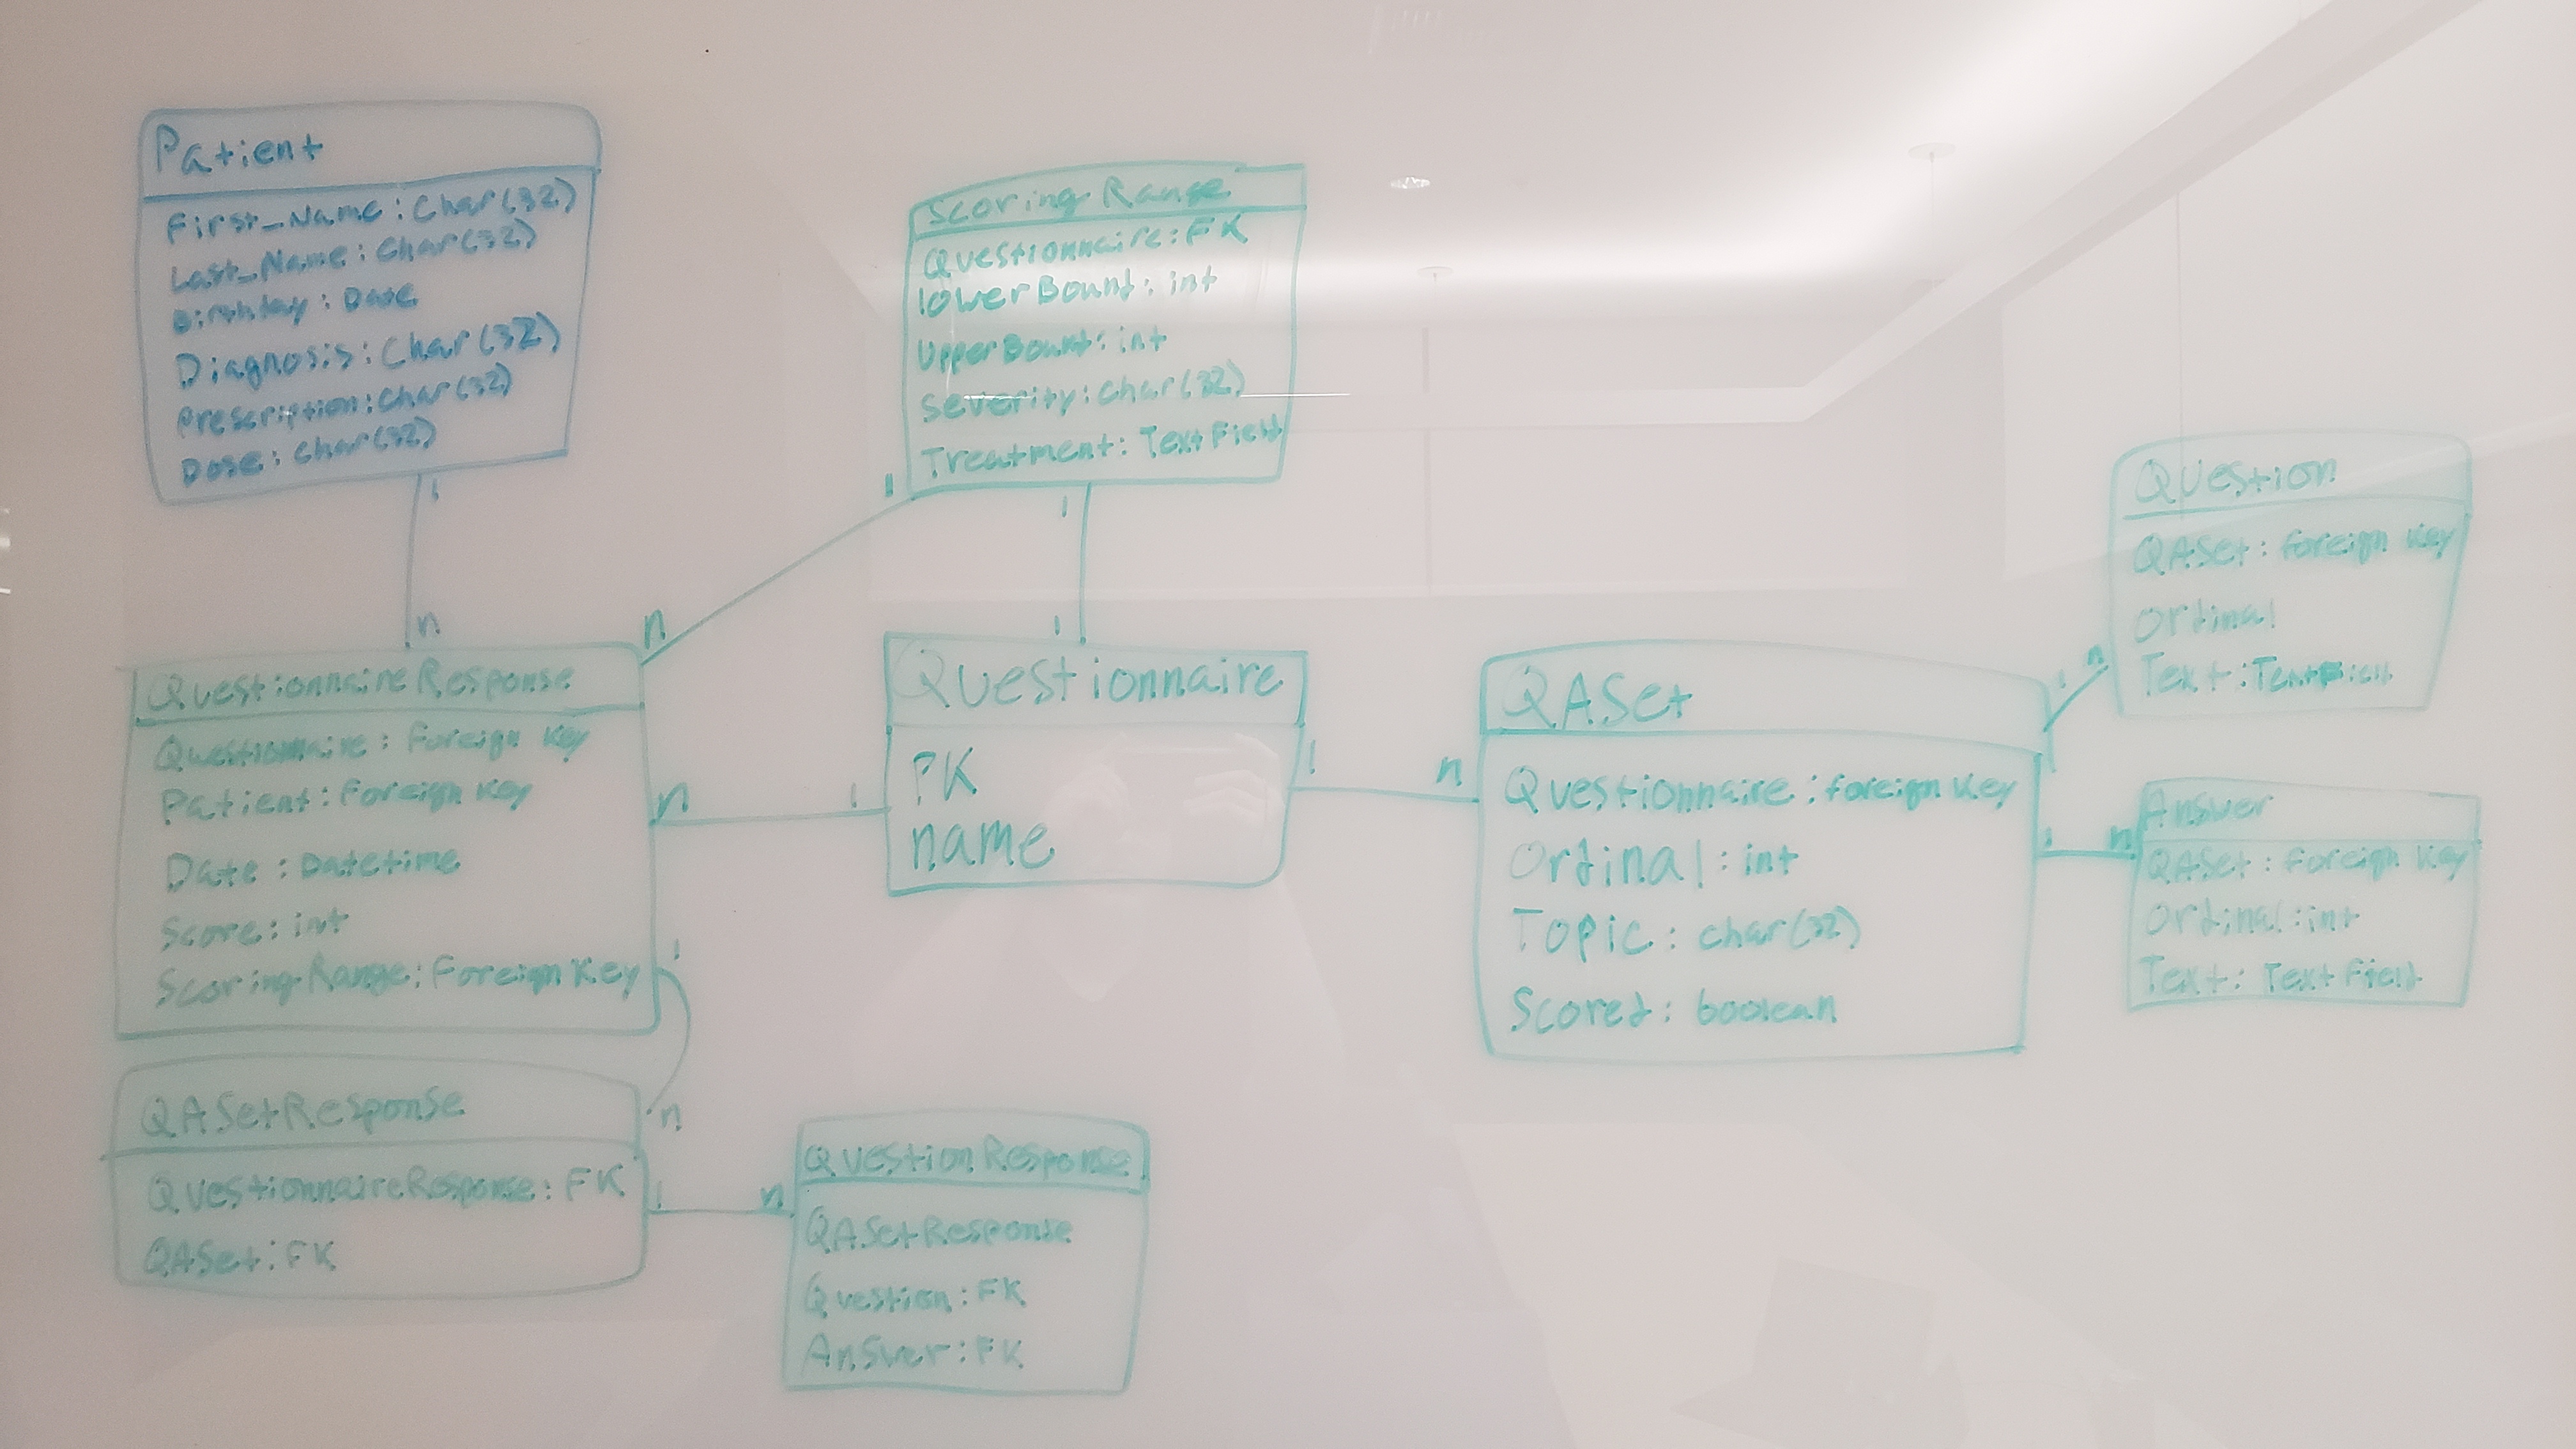 Patient
First_Name: Char(32)
Last_Name: Char(32)
Birthday: Date
Diagnosis: Char(32)
Prescription: Char(32)
Dose: Char(32)
1
n
Scoring Range
Questionnaire: FK
lowerBound: int
UpperBound: int
Severity: Char(32)
Treatment: TextField
1
n
1
1
QuestionnaireResponse
Questionnaire: Foreign Key
Patient: Foreign Key
Date: Datetime
Score: int
ScoringRange: Foreign Key
n
1
1
n
Questionnaire
PK
name
1
n
QASet
Questionnaire: foreign Key
Ordinal: int
Topic: char(32)
Scored: boolean
1
n
Question
QASet: foreign Key
Ordinal
Text: TextField
1
n
Answer
QASet: Foreign Key
Ordinal: int
Text: TextField
QASetResponse
QuestionnaireResponse: FK
QASet: FK
1
n
QuestionResponse
QASetResponse
Question: FK
Answer: FK